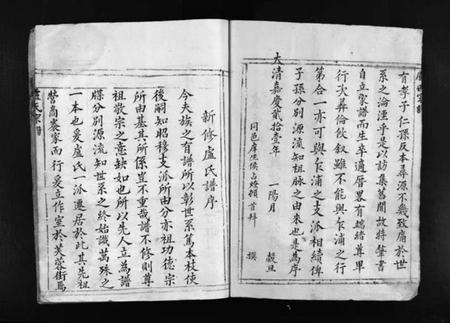 有孝子仁孫反本尋源不幾致痛於世
系之淪湮乎是以訪集舊聞故将肇書
自立家譜而生卒適厝畧有統緒尊卑
行次尋倫攸叙雖不能與乍浦之行
第合一亦可與乍浦之支派相續俾
子孫分別源流知祖脉之由来也是為序
大清嘉慶貳拾壹年 一陽月 穀旦
同邑庠生 首拜 撰
新修盧氏譜序
今夫族之有譜所以彰世系篤本枝使
後嗣知昭穆支派所由分亦祖功德宗
所由基其所係豈不重哉譜不修則尊
祖敬宗之意缺如也所以先人立為譜
牒分別源流知世系之終始識萬殊之
一本也爰盧氏一派遷居於此其先祖
營商裘家而行爰立作室於芙蓉街為